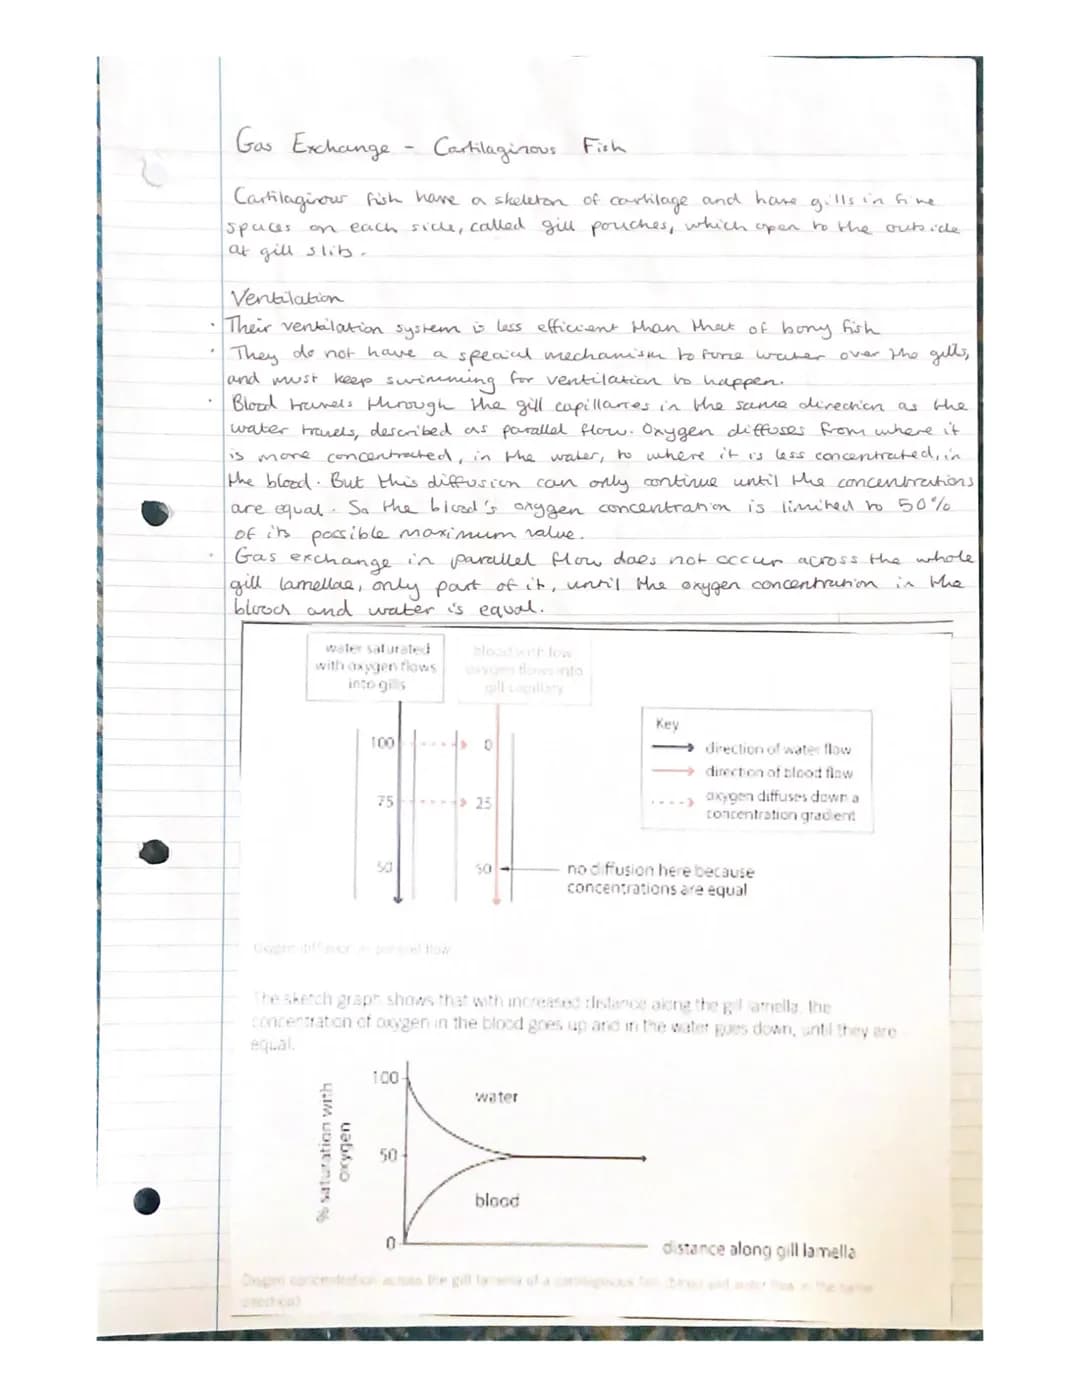 Gas Exchange - Cartilaginous Fish
Cartilaginous fish have a skeleton of cartilage and have gills in five
spaces on each side, called gill pouches, which open to the outside
at gill slits.
Ventilation
· Their ventilation system is less efficient than that of bony fish
· They do not have a special mechanism to force water over the gills,
and must keep swimming for ventilation to happen.
· Blood travels through the gill capillaries in the same direction as the
water travels, described as parallel flow. Oxygen diffuses from where it
is more concentrated, in the water, to where it is less concentrated, in
the blood. But this diffusion can only continue until the concentrations
are equal. So the blood's oxygen concentration is limited to 50%
of its possible maximum value.
· Gas exchange in parallel flow does not occur across the whole
gill lamellae, only part of it, until the oxygen concentration in the
blood and water is equal.
water saturated
with oxygen flows
into gills
blood with low
oxygen flows into
gill capillary
Key
direction of water flow
direction of blood flow
oxygen diffuses down a
concentration gradient
100 0
75 25
50 50
no diffusion here because
concentrations are equal
Oxygen diffusion in parallel flow
The sketch graph shows that with increased distance along the gill lamella, the
concentration of oxygen in the blood goes up and in the water goes down, until they are
equal.
% saturation with
oxygen
100
50
0
water
blood
distance along gill lamella
Oxygen concentration across the gill lamella of a cartilaginous fish (blood and water flow in the same
direction)